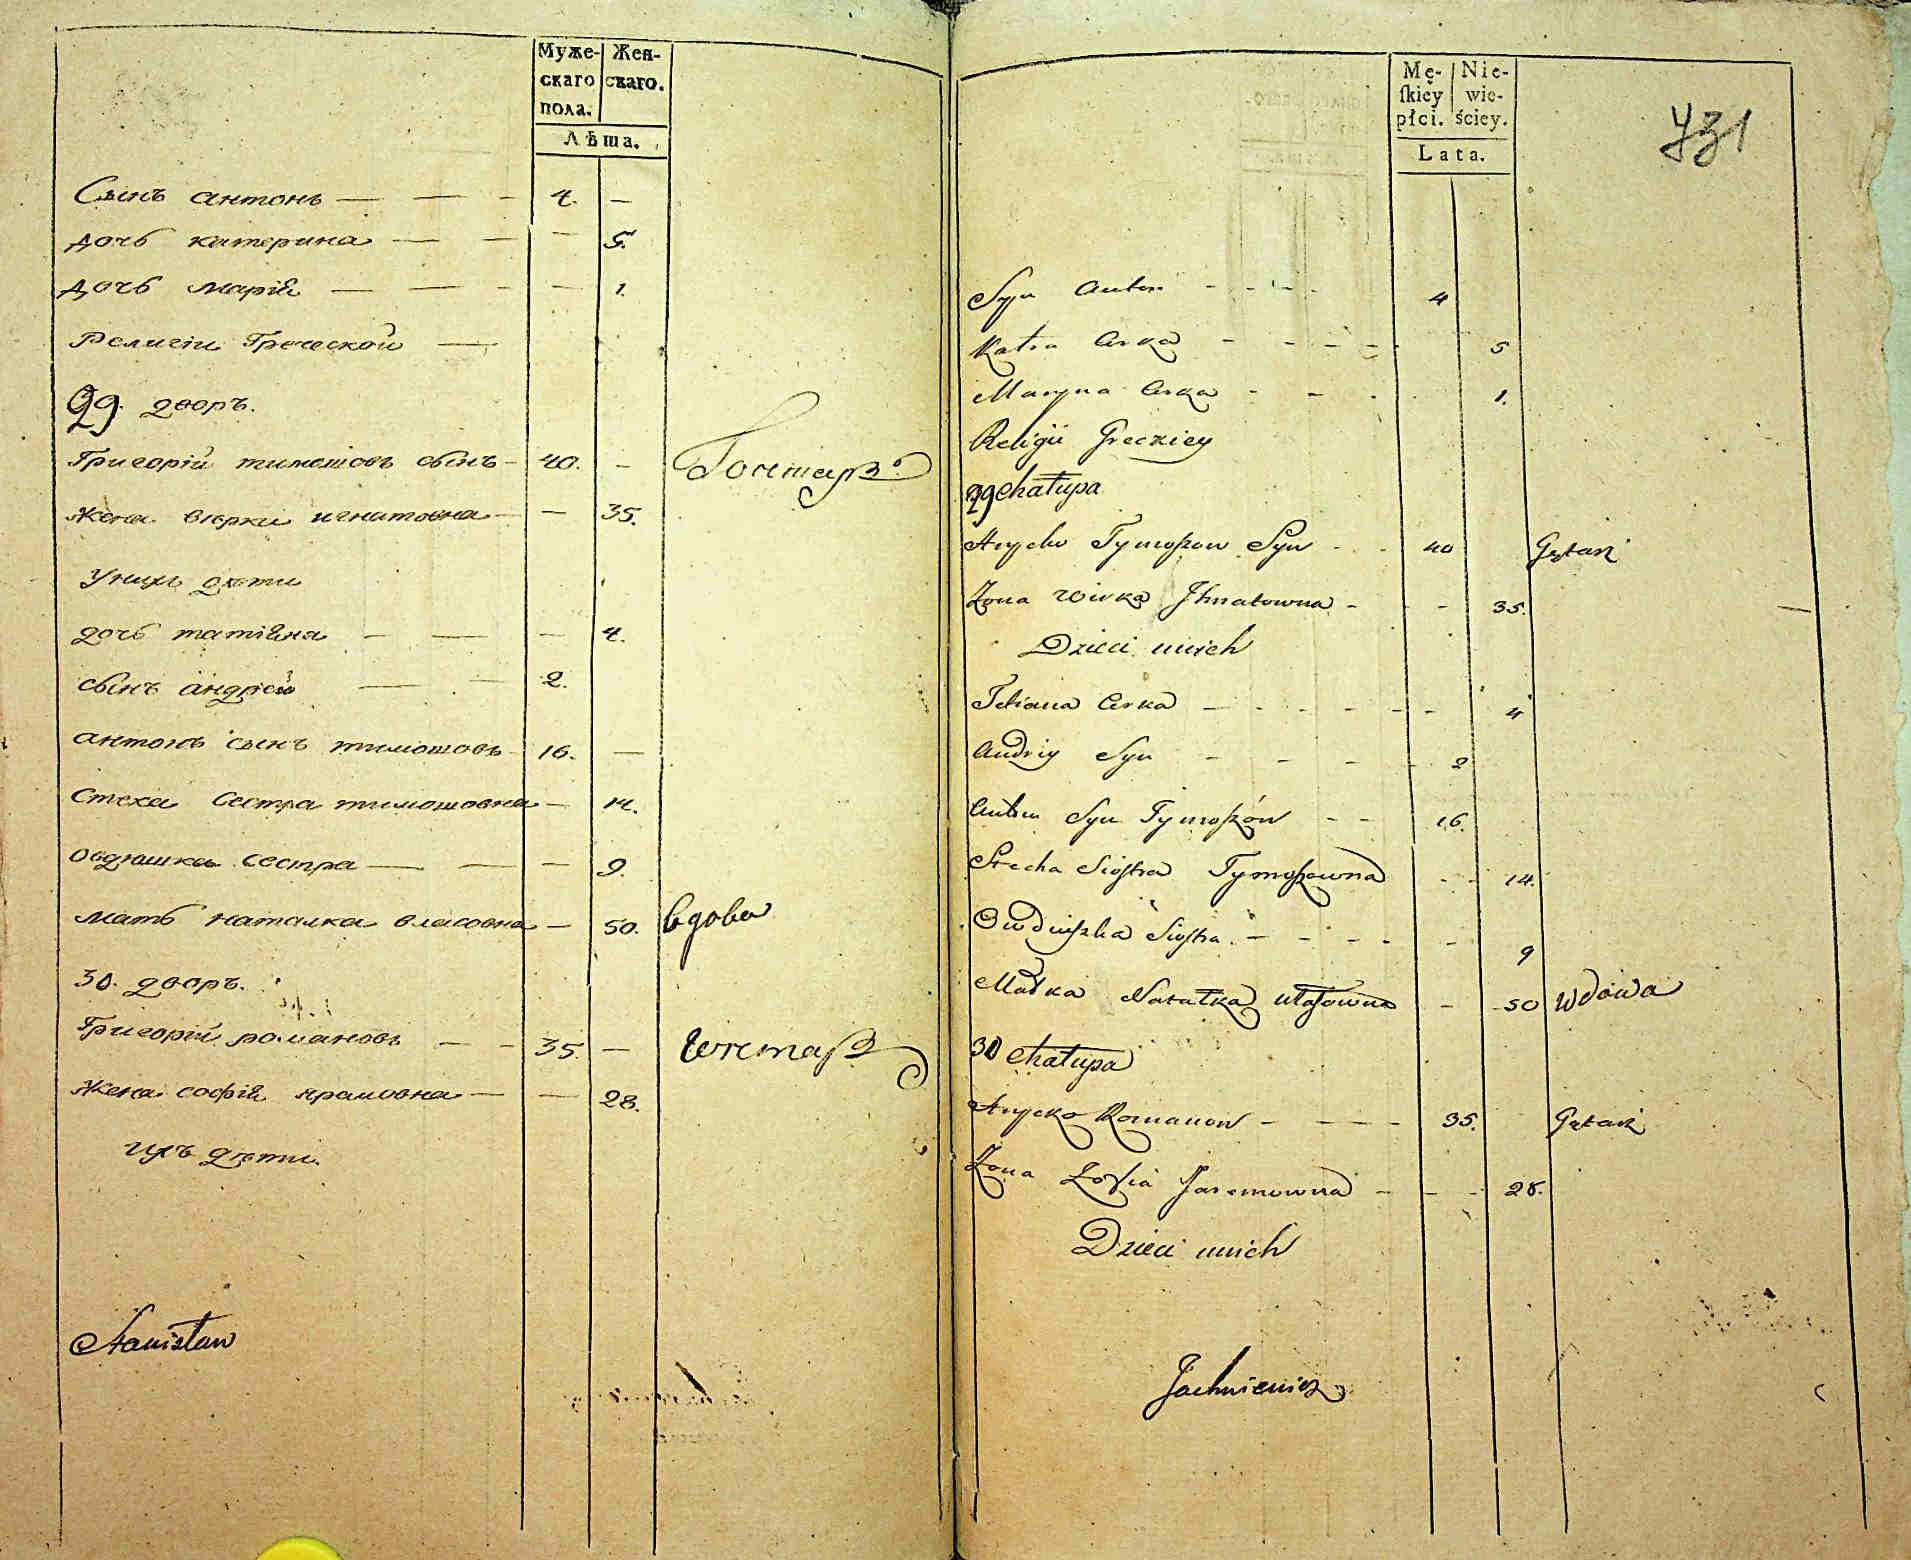 Муже-
скаго
пола.
Жен-
скаго.
Лѣта.
Сынъ антонъ — — - 4. —
дочь катерина — — - — 5.
дочь марія — — - — 1.
Религіи Греческой —
29. дворъ.
Григорій тимошовъ сынъ - 40. -
жена вѣрки игнатовна - — 35.
У нихъ дѣти
дочь татіяна — — — 4.
сынъ андрей — — 2.
антонъ сынъ тимошовъ 16. —
Стеха сестра тимошовна — 14.
Овдюшка сестра — — — 9.
мать наталка власовна — 50. вдова
30. дворъ.
Григорій романовъ — - 35. —
жена софія ярамовна — — 28.
ихъ дѣти.
Stanisław
Mę-
ſkiey
płci.
Nie-
wie-
ściey.
Lata.
731
Syn Anton - - - - 4
Katra Corka - - - - 5
Maryna Corka - - - 1.
Religii Greckiey
29 chałupa
Hryćko Tymoszow Syn - - 40
Zona Ihnatowna - - - 35.
Dzieci unich
Tetiana Corka - - - - - - 4
Andriy Syn - - - - - 2
Anton Syn Tymoszów - - 16.
Stecha Siostra Tymoszowna - - 14.
Owdiuszka Siostra - - - - - 9
Matka Natałka Własowna - 50 wdowa
30 chałupa
Hryćko Romanow - - - - 35.
Zona Zofia Jaremowna - - - 28.
Dzieci unich
Jachniewicz